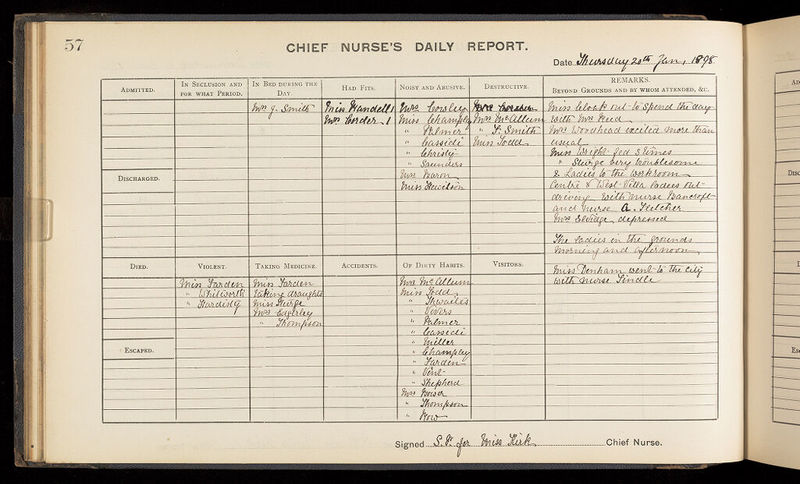 57
CHIEF NURSE'S DAILY REPORT.
Date Thursday 20th Jan, 1898
ADMITTED.
IN SECLUSION AND FOR WHAT PERIOD.
IN BED DURING THE DAY
Mrs J. Smith
HAD FITS.
Miss Wandell 1
Mrs Corder 1
NOISY AND ABUSIVE.
Mrs Cowley
Miss Champley
" Palmer
" Cassidi
" Christy
" Saunders
Mrs
Miss
DESTRUCTIVE.
Mrs
Mrs McAllum
" F. Smith
Miss Todd
REMARKS.
BEYOND GROUNDS AND BY WHOM ATTENDED, &C.
Miss out to spend the day
with Mrs Reed
Mrs Woodhead excited more than
usual
Miss Wright fed 3 times
" Sturge very troublesome
8 Ladies to the workroom
Centre & West Villa Ladies out
driving with Nurse Bancroft
and Nurse A. Fletcher
Mrs depressed
The ladies in the grounds
morning and afternoon
Miss Denham went to the city
with Nurse Tindle
DISCHARGED.
DIED.
VIOLENT.
Miss Farden
" Whitworth
" Hardisty
TAKING MEDICINE.
Miss Farden
taking draughts
Miss Sturge
Mrs
" Thompson
ACCIDENTS.
OF DIRTY HABITS.
Mrs McAllum
Miss Todd
" Thwaites
"
" Palmer
" Cassidi
" Miller
" Champley
" Farden
" Vint
" Shepherd
Mrs
" Thompson
" Row
VISITORS.
ESCAPED.
Signed S.P. for Miss Kirk Chief Nurse.
AD
DISC
ESC